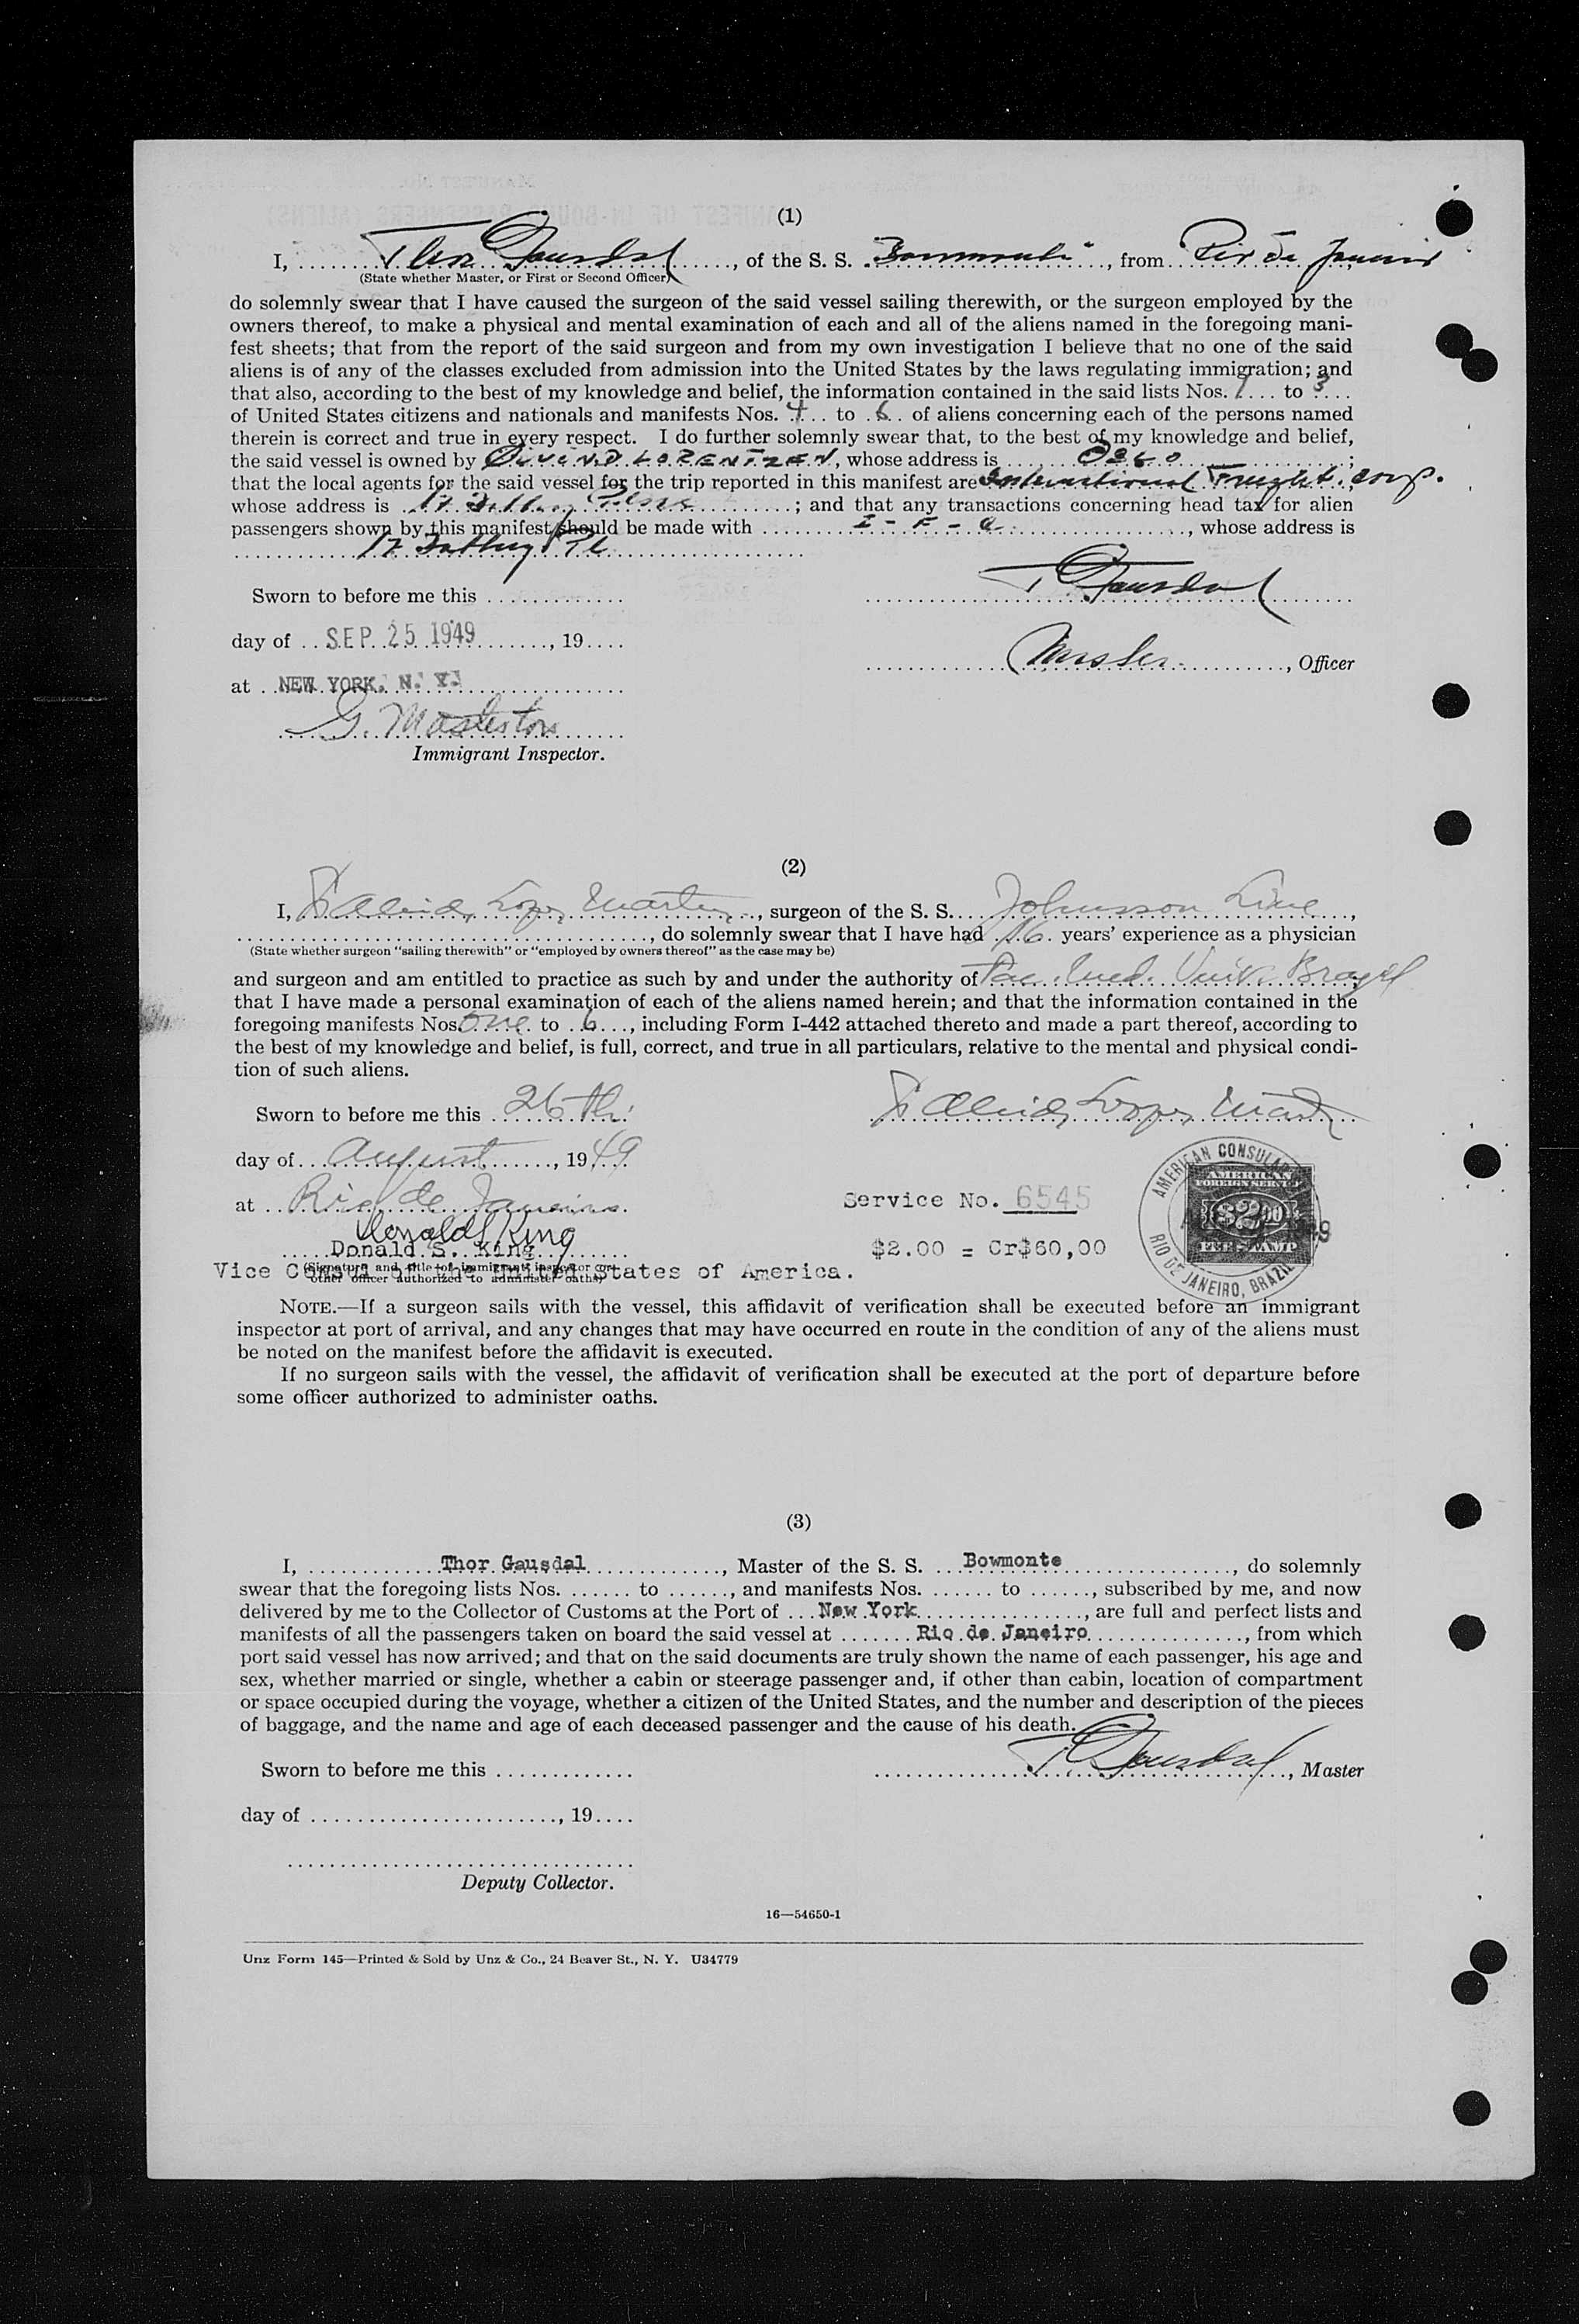 (1)
I, Thor Gausdal, of the S. S. "Bowmonte", from Rio de Janeiro
(State whether Master, or First or Second Officer)
do solemnly swear that I have caused the surgeon of the said vessel sailing therewith, or the surgeon employed by the
owners thereof, to make a physical and mental examination of each and all of the aliens named in the foregoing mani-
fest sheets; that from the report of the said surgeon and from my own investigation I believe that no one of the said
aliens is of any of the classes excluded from admission into the United States by the laws regulating immigration; and
that also, according to the best of my knowledge and belief, the information contained in the said lists Nos. 1 to 3
of United States citizens and nationals and manifests Nos. 4 to 6 of aliens concerning each of the persons named
therein is correct and true in every respect. I do further solemnly swear that, to the best of my knowledge and belief,
the said vessel is owned by ØIVIND LORENTZEN, whose address is OSLO;
that the local agents for the said vessel for the trip reported in this manifest are International Freight. corp.,
whose address is 17 Battery Place; and that any transactions concerning head tax for alien
passengers shown by this manifest should be made with I-F-C, whose address is
17 Battery Pl
Sworn to before me this
T Gausdal
day of SEP 25 1949, 19
Master, Officer
at NEW YORK, N. Y.
G. Masterton
Immigrant Inspector.
(2)
I, Lopes, surgeon of the S. S. Johnson Line,
, do solemnly swear that I have had 16 years' experience as a physician
(State whether surgeon "sailing therewith" or "employed by owners thereof" as the case may be)
and surgeon and am entitled to practice as such by and under the authority of Fac. Med. Univ. Brazil;
that I have made a personal examination of each of the aliens named herein; and that the information contained in the
foregoing manifests Nos. one to 6, including Form I-442 attached thereto and made a part thereof, according to
the best of my knowledge and belief, is full, correct, and true in all particulars, relative to the mental and physical condi-
tion of such aliens.
Sworn to before me this 26th.
Lopes
day of August, 1949
AMERICAN CONSULAR
AMERICAN
FOREIGN SERVICE
$2.00
FEE STAMP
RIO DE JANEIRO, BRAZIL
at Rio de Janeiro.
Service No. 6545
Donald S King
Donald S. King
$2.00 = Cr$60,00
(Signature and title of immigrant inspector or
Vice Consul of the United States of America.
other officer authorized to administer oaths)
NOTE.—If a surgeon sails with the vessel, this affidavit of verification shall be executed before an immigrant
inspector at port of arrival, and any changes that may have occurred en route in the condition of any of the aliens must
be noted on the manifest before the affidavit is executed.
If no surgeon sails with the vessel, the affidavit of verification shall be executed at the port of departure before
some officer authorized to administer oaths.
(3)
I, Thor Gausdal, Master of the S. S. Bowmonte, do solemnly
swear that the foregoing lists Nos. to , and manifests Nos. to , subscribed by me, and now
delivered by me to the Collector of Customs at the Port of New York, are full and perfect lists and
manifests of all the passengers taken on board the said vessel at Rio de Janeiro, from which
port said vessel has now arrived; and that on the said documents are truly shown the name of each passenger, his age and
sex, whether married or single, whether a cabin or steerage passenger and, if other than cabin, location of compartment
or space occupied during the voyage, whether a citizen of the United States, and the number and description of the pieces
of baggage, and the name and age of each deceased passenger and the cause of his death.
Sworn to before me this
T Gausdal, Master
day of , 19
Deputy Collector.
16—54650-1
Unz Form 145—Printed & Sold by Unz & Co., 24 Beaver St., N. Y. U34779